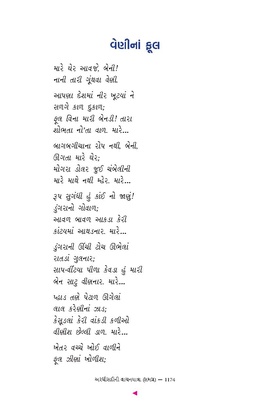 વેણીનાં ફૂલ
મારે ઘેર આવજે, બેની!
નાની તારી ગૂંથવા વેણી.
આપણા દેશમાં નીર ખૂટ્યાં ને
સળગે કાળ દુકાળ;
ફૂલ વિના મારી બેનડી! તારા
શોભતા નો'તા વાળ. મારે...
બાગબગીચાના રોપ નથી, બેની,
ઊગતા મારે ઘેર;
મોગરા ડોલર જૂઈ ચંબેલીની
મારે માથે નથી મ્હેર. મારે...
રૂપ સુગંધી હું કાંઈ નો જાણું!
ડુંગરાનો ગોવાળ;
આવળ બાવળ આકડા કેરી
કાંટ્યમાં આથડનાર. મારે...
ડુંગરાની ઊંચી ટોચ ઊભેલાં
રાતડાં ગુલનાર;
સાપ-વીંટ્યા પીળા કેવડા હું મારી
બેન સાટુ વીણનાર. મારે...
પ્હાડ તણે પેટાળ ઊગેલાં
લાલ કરેણીનાં ઝાડ;
કેસૂડલાં કેરી વાંકડી કળીઓ
વીણીશ છેલ્લી ડાળ. મારે...
ખેતર વચ્ચે ખોઈ વાળીને
ફૂલ ઝીણાં ખોળીશ;
અરધી સદીની વાચનયાત્રા 1174